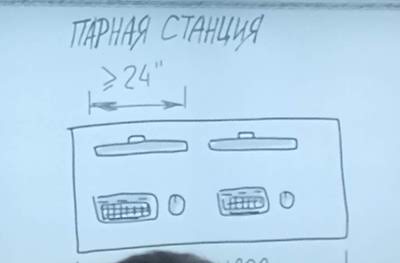 ПАРНАЯ СТАНЦИЯ
≥24"